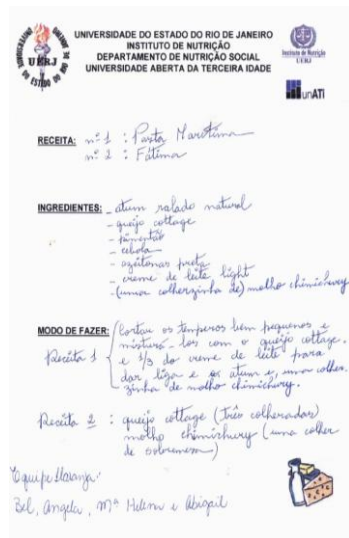 UNIVERSIDADE DO ESTADO DO RIO DE JANEIRO
INSTITUTO DE NUTRIÇÃO
DEPARTAMENTO DE NUTRIÇÃO SOCIAL
UNIVERSIDADE ABERTA DA TERCEIRA IDADE
UERJ
Instituto de Nutrição
UERJ
unATI
RECEITA: nº 1 : Pasta Marotima
nº 2 : Fátima
INGREDIENTES: - atum ralado natural
- queijo cottage
- pimentão
- cebola
- azeitonas preta
- creme de leite light
- (uma colherzinha de) molho chimichury
MODO DE FAZER: Cortar os temperos bem pequenos e
misturá-los com o queijo cottage.
Receita 1 e 1/3 do creme de leite para
dar liga e o atum e, uma colher-
zinha de molho chimichury.
Receita 2 : queijo cottage (três colheradas)
molho chimichury (uma colher
de sobremesa)
Equipe Laranja:
Bel, Angela, Mª Helena e Abigail